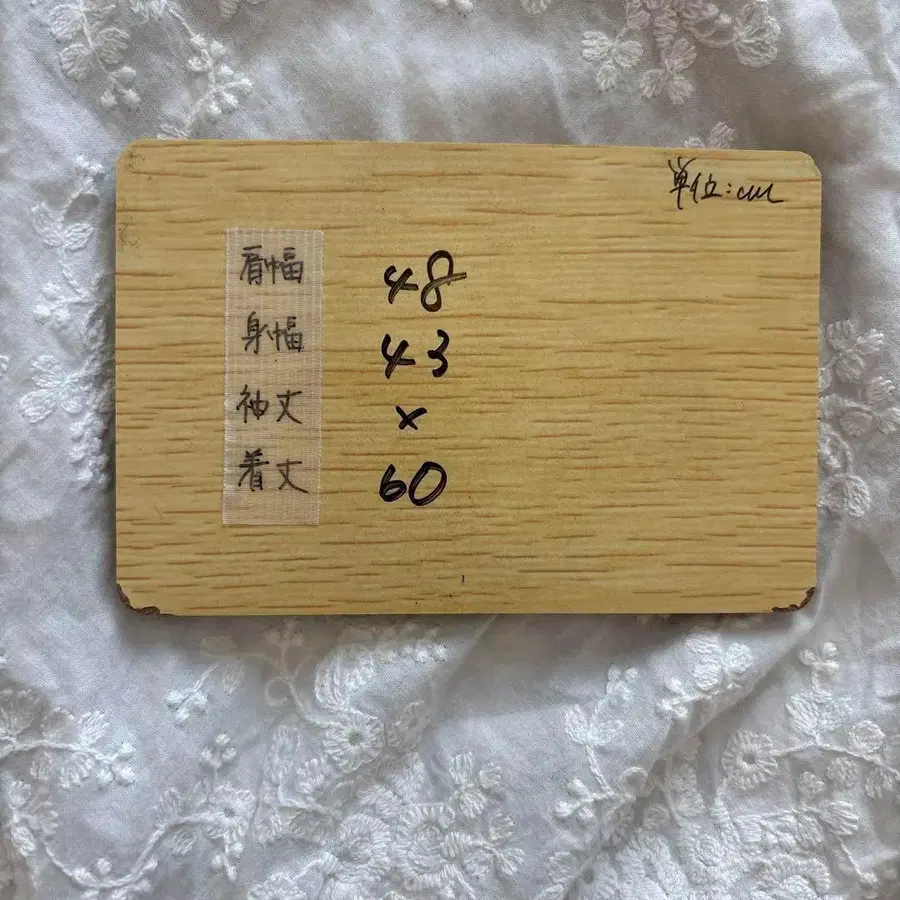 単位:cm
肩幅 48
身幅 43
袖丈 ×
着丈 60